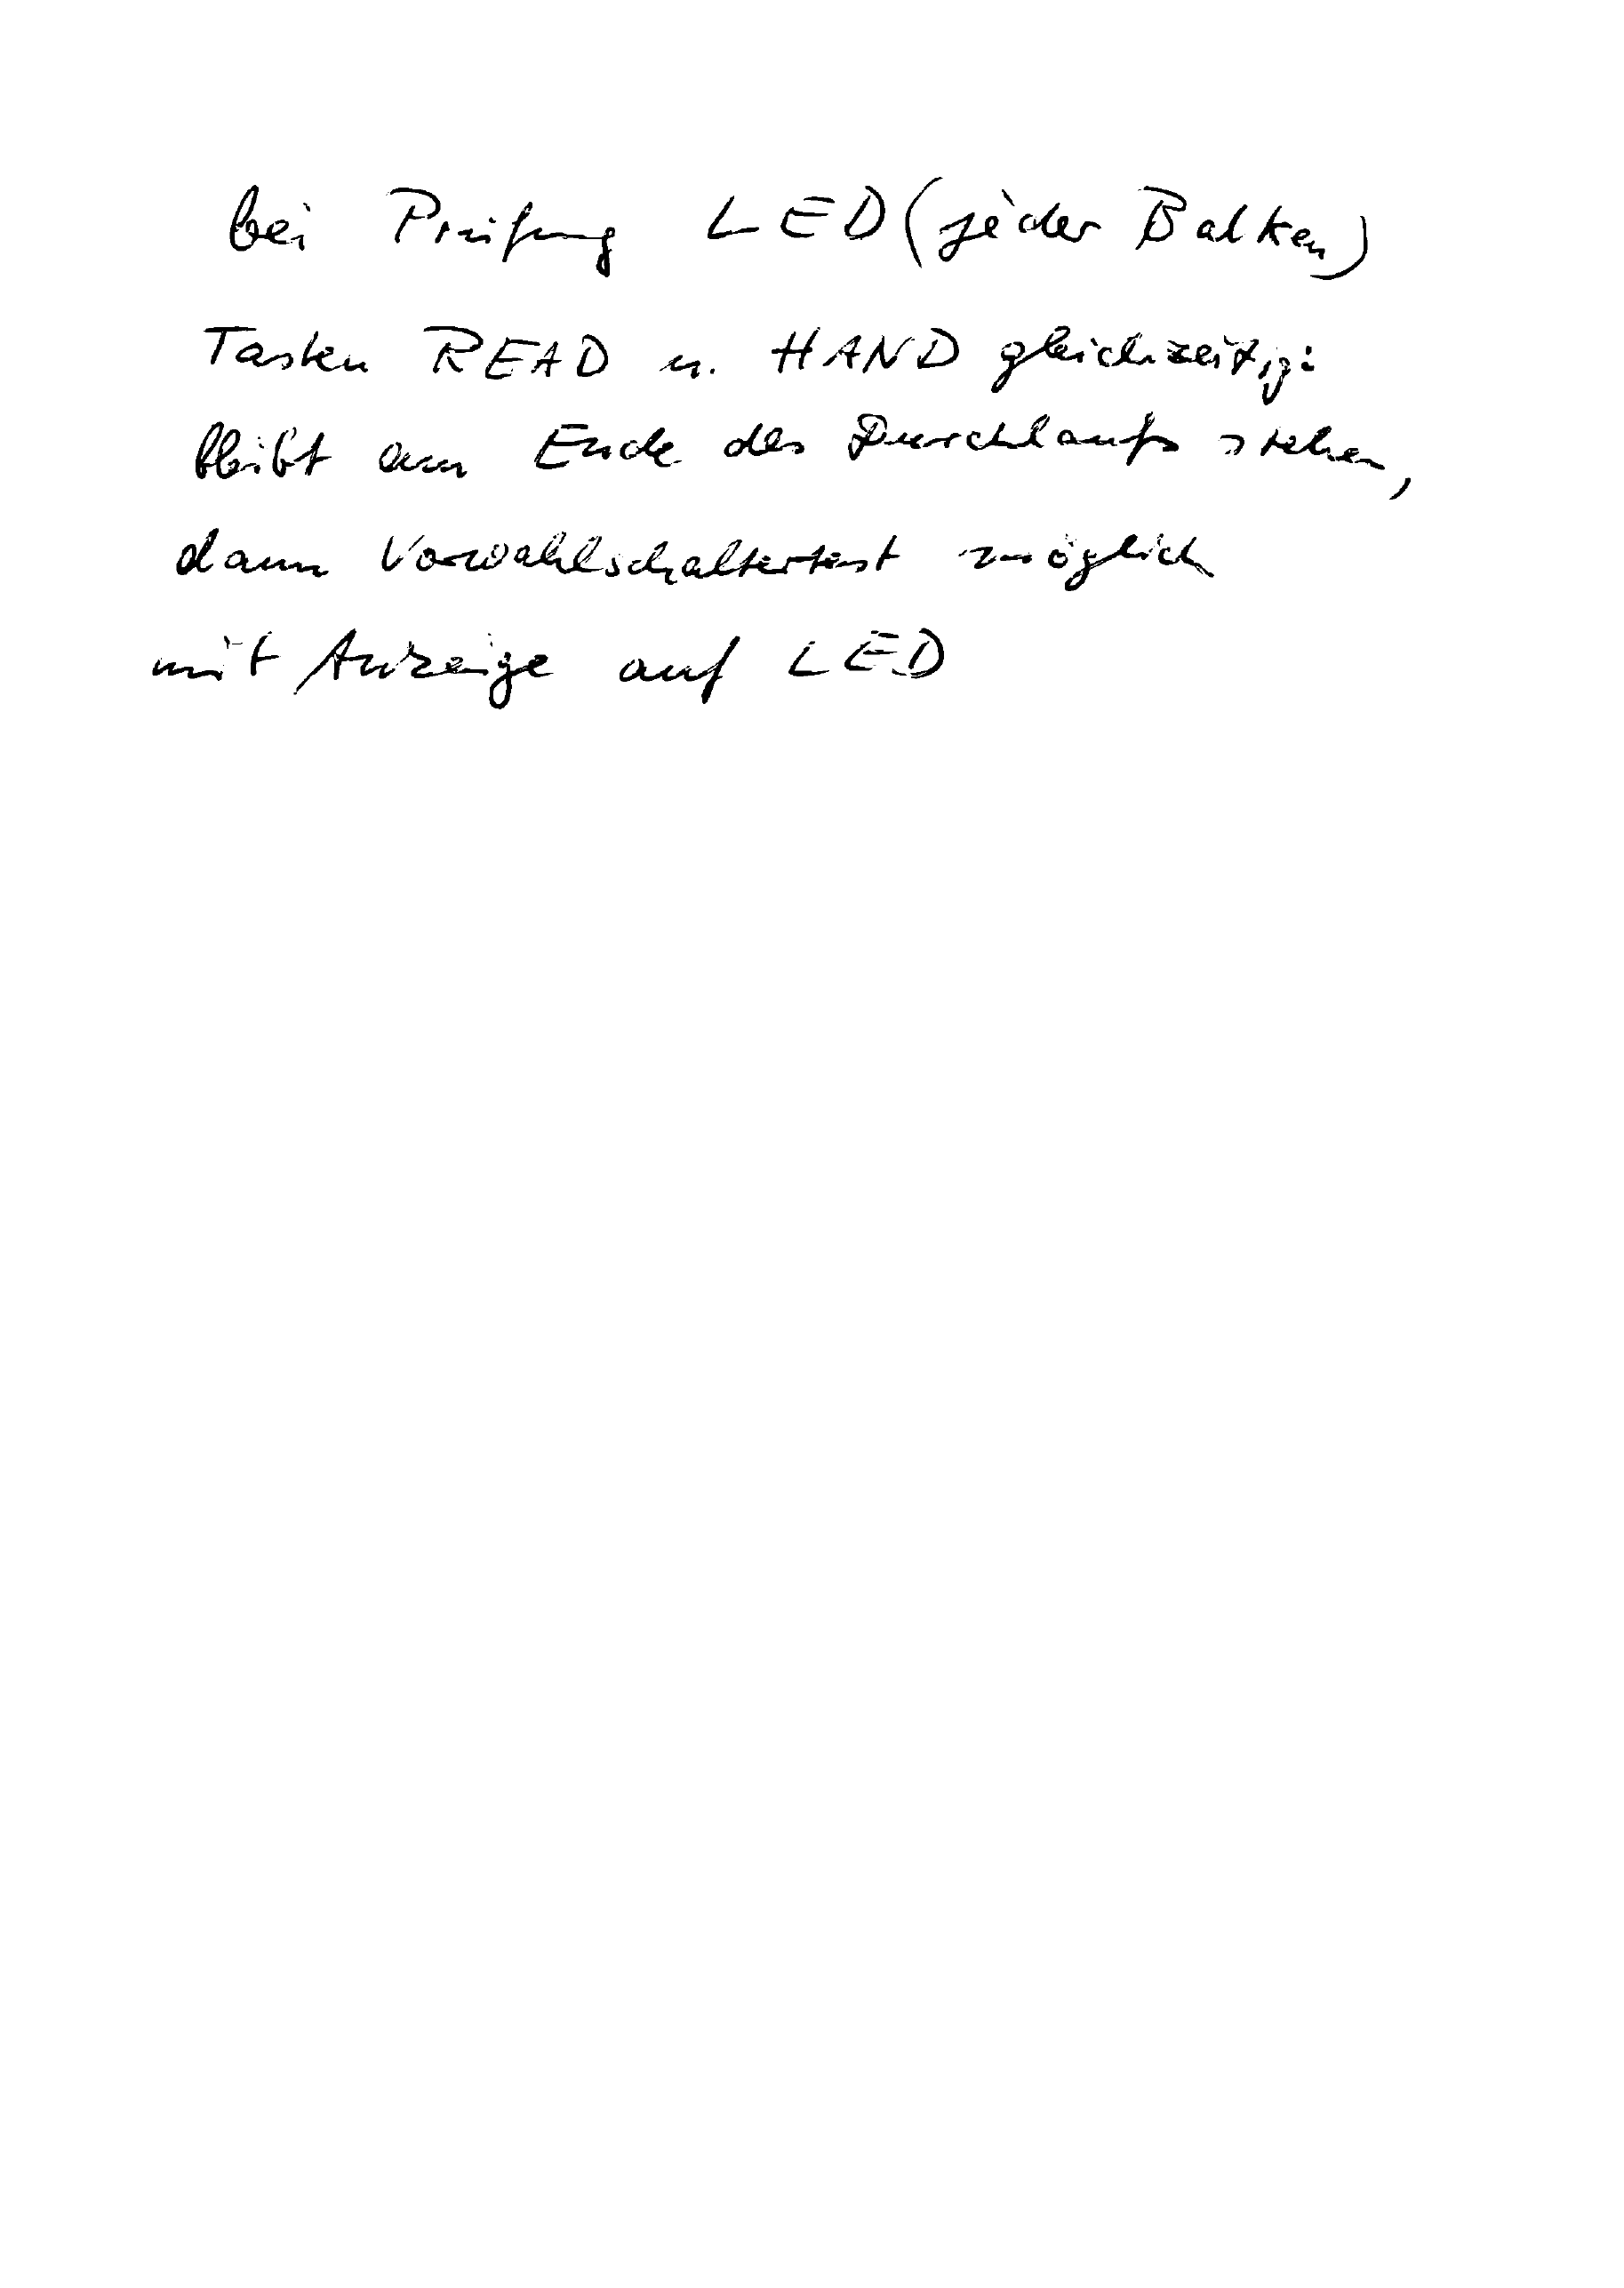 bei Prüfung LED (jeder Balken)
Tasten READ u. HAND gleichzeitig:
bleibt am Ende des Durchlaufs stehen,
dann Vorwahlschaltertest möglich
mit Anzeige auf LED